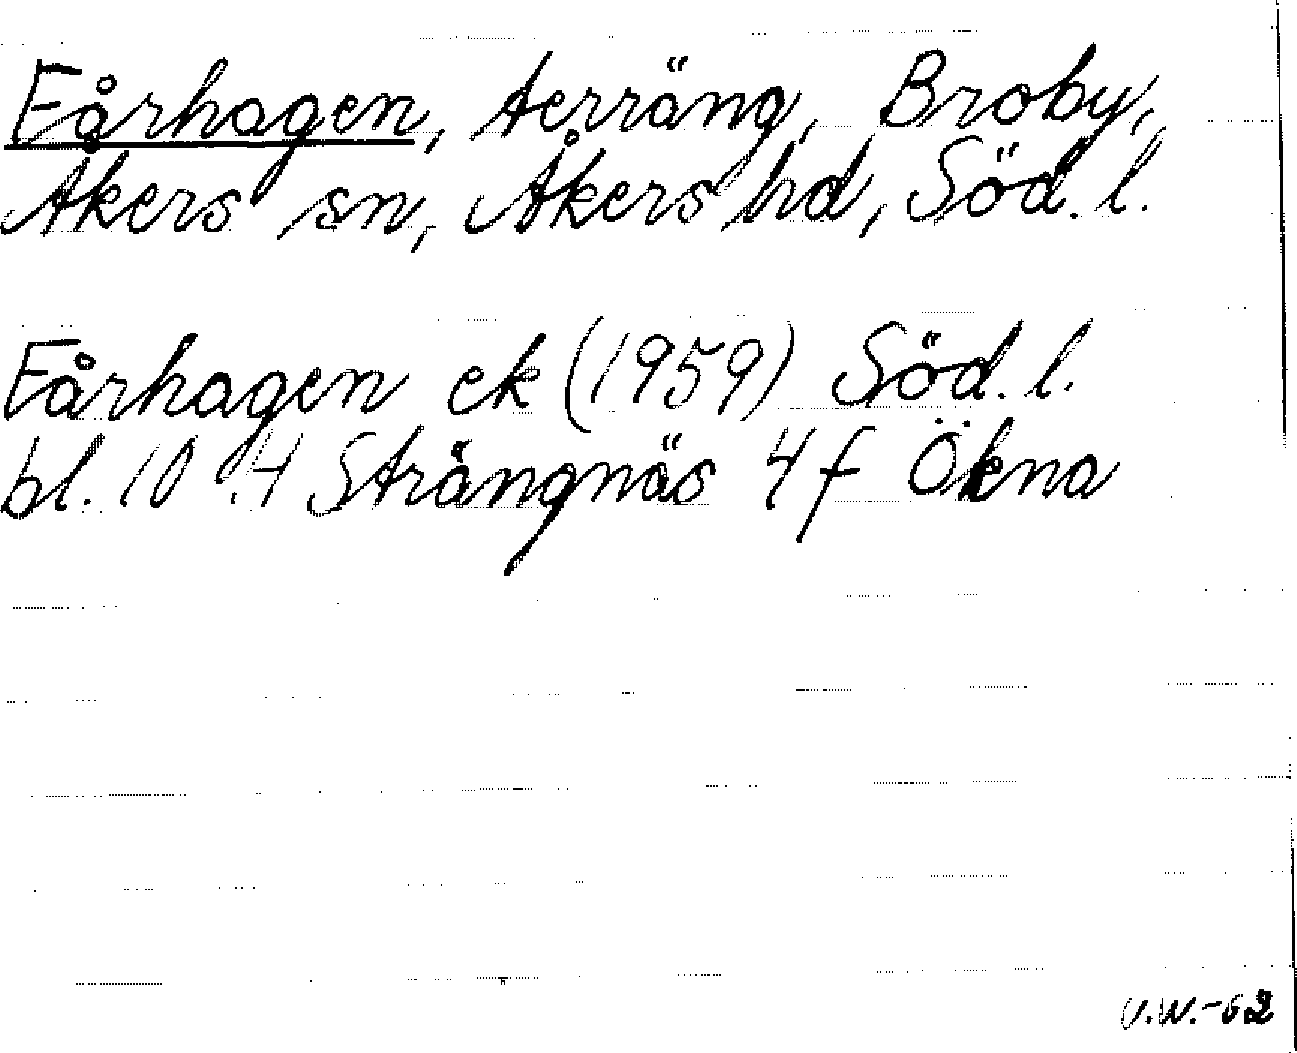 Fårhagen, terräng, Broby,
Åkers sn, Åkers hd, Söd. l.
Fårhagen ek (1959) Söd. l.
bl. 10 H Strängnäs 4 f Ökna
V.W.-62